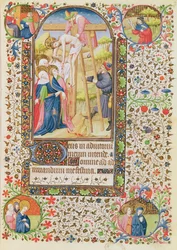 Deus in adiutori
um meum intende.
Domine ad ad
iuuandum me festina.